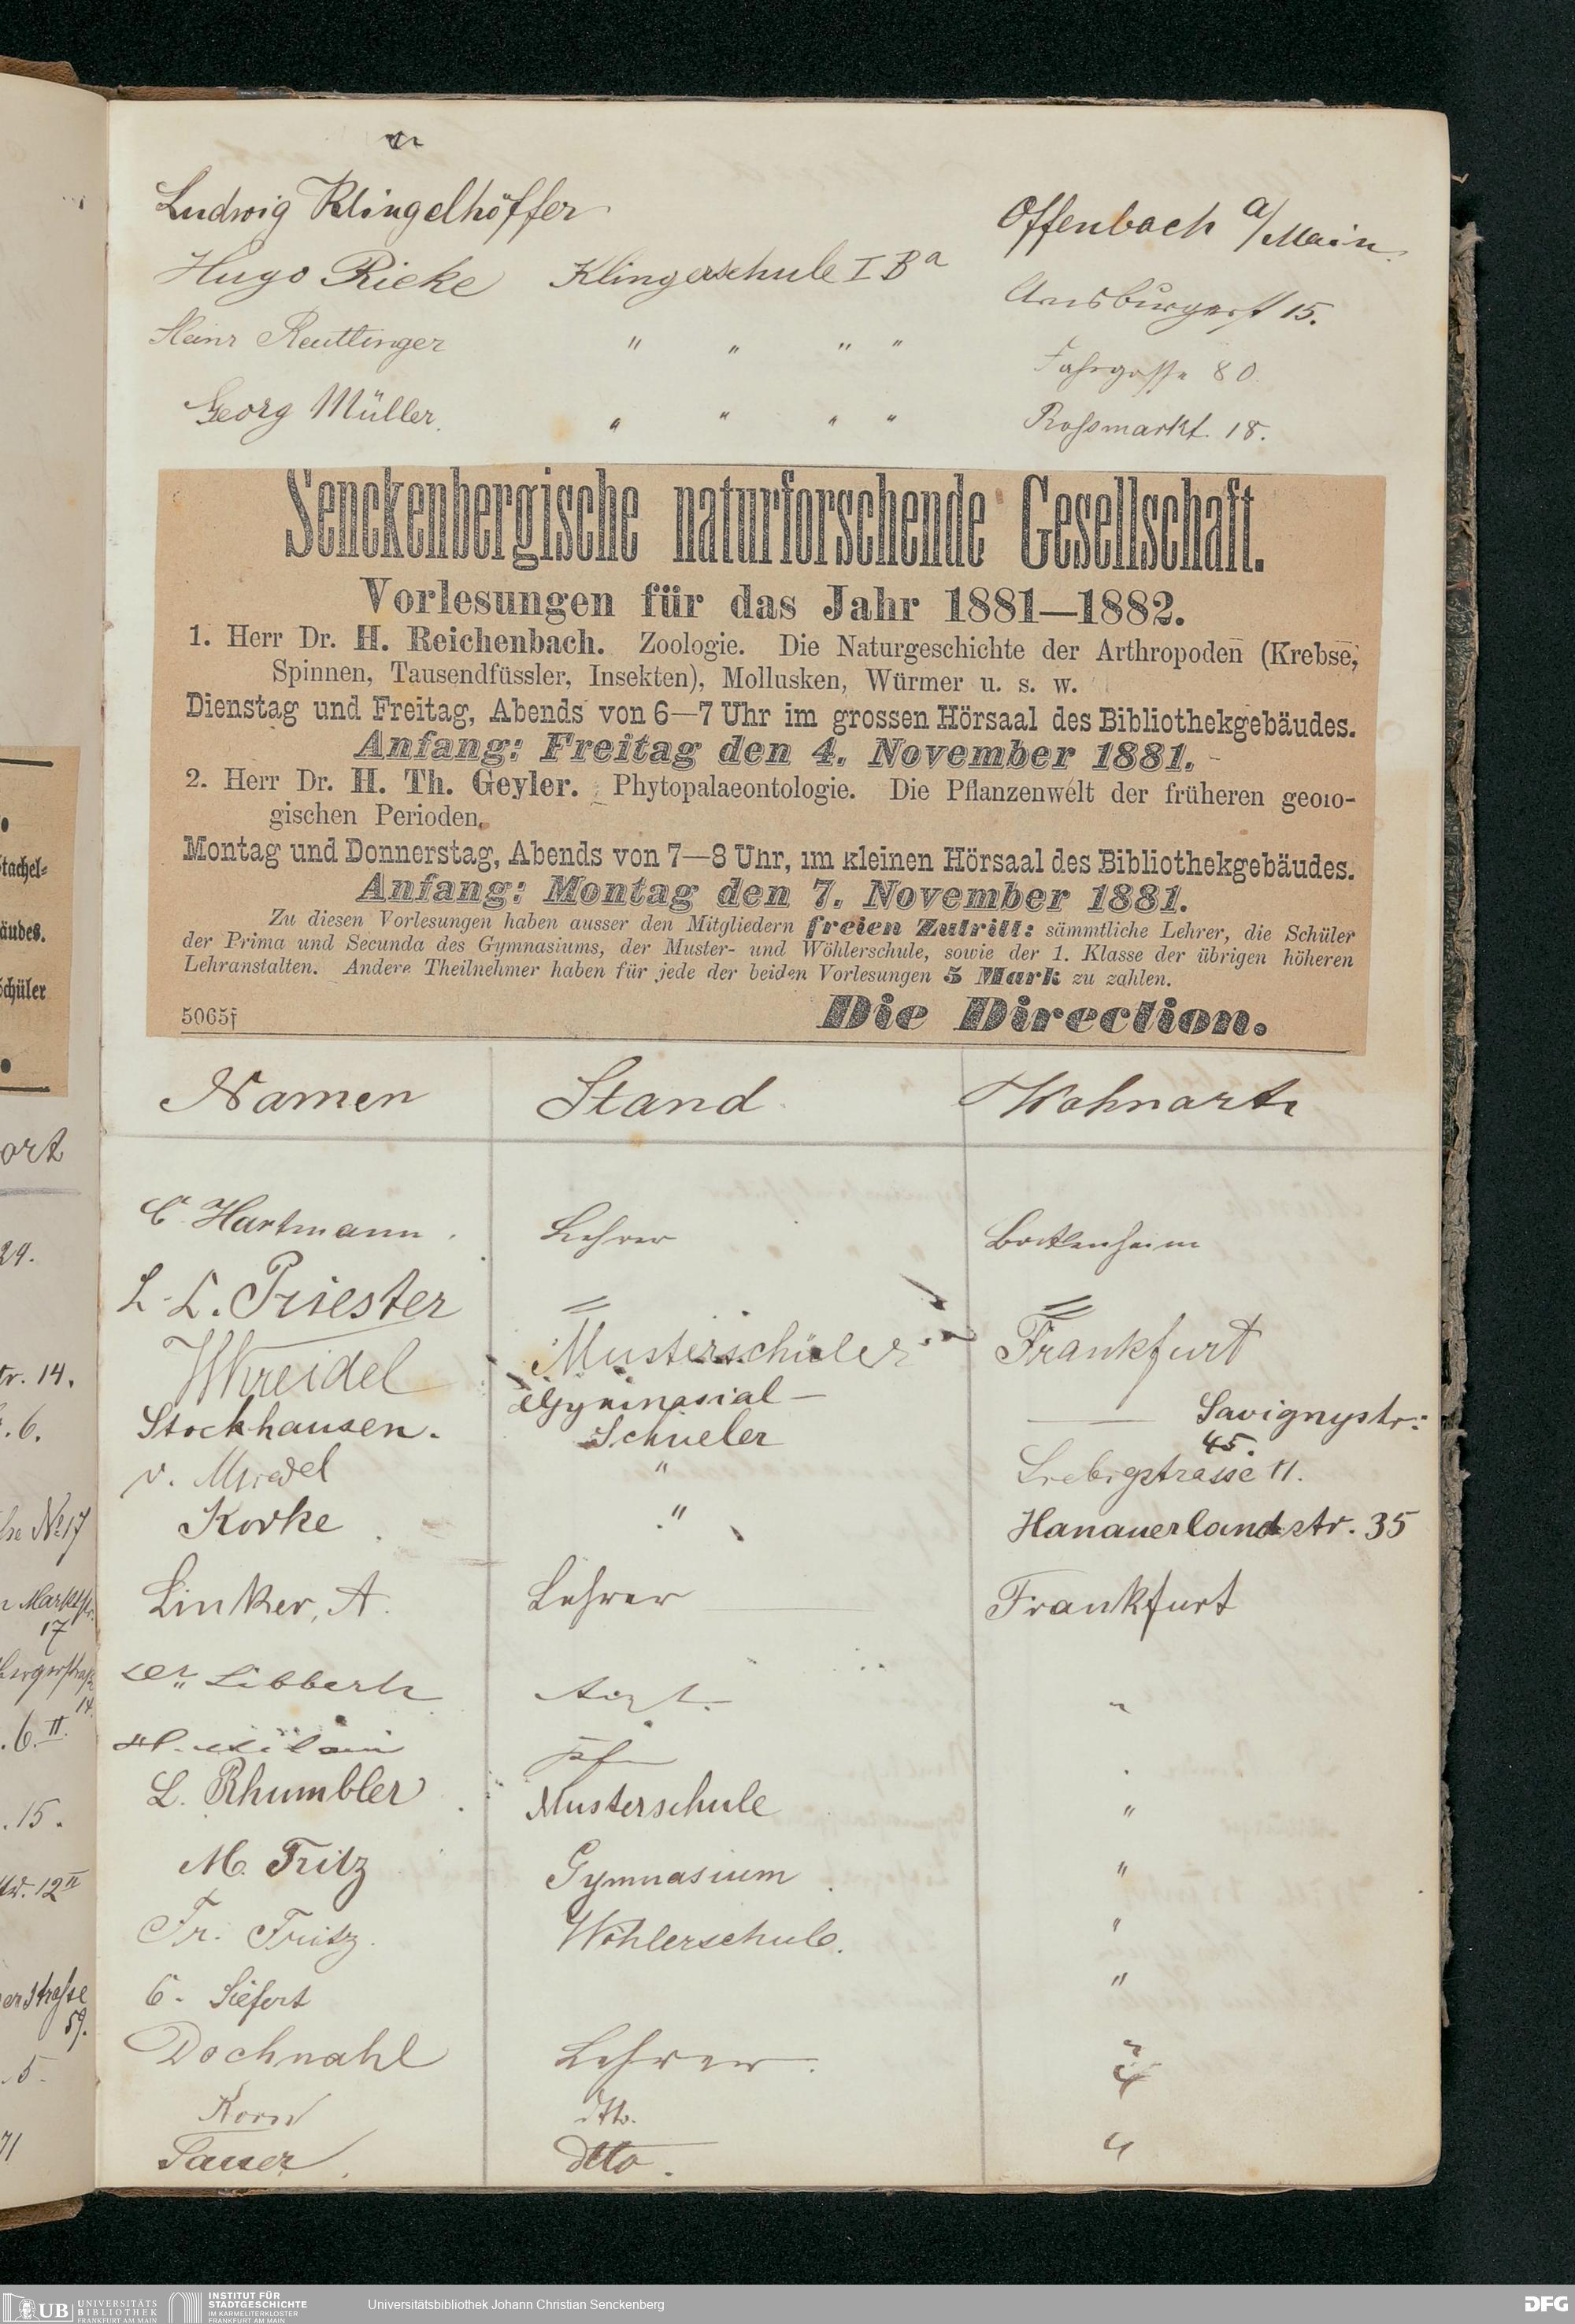 Ludwig Klingelhöffer Offenbach a/Main.
Hugo Rieke Klingerschule I Ba Arnsburgerst 15.
Heinr Reuttinger " " " " Fahrgasse 80
Georg Müller. " " " " Rossmarkt. 18.
Senckenbergische naturforschende Gesellschaft.
Vorlesungen für das Jahr 1881—1882.
1. Herr Dr. H. Reichenbach. Zoologie. Die Naturgeschichte der Arthropoden (Krebse,
Spinnen, Tausendfüssler, Insekten), Mollusken, Würmer u. s. w.
Dienstag und Freitag, Abends von 6—7 Uhr im grossen Hörsaal des Bibliothekgebäudes.
Anfang: Freitag den 4. November 1881.
2. Herr Dr. H. Th. Geyler. Phytopalaeontologie. Die Pflanzenwelt der früheren geolo-
gischen Perioden.
Montag und Donnerstag, Abends von 7—8 Uhr, im kleinen Hörsaal des Bibliothekgebäudes.
Anfang: Montag den 7. November 1881.
Zu diesen Vorlesungen haben ausser den Mitgliedern freien Zutritt: sämmtliche Lehrer, die Schüler
der Prima und Secunda des Gymnasiums, der Muster- und Wöhlerschule, sowie der 1. Klasse der übrigen höheren
Lehranstalten. Andere Theilnehmer haben für jede der beiden Vorlesungen 5 Mark zu zahlen.
5065f Die Direction.
Namen Stand Wohnort
C. Hartmann. Lehrer Bockenheim
L. L. Priester = =
WKreidel Musterschüler Frankfurt
Stockhausen. Gymnasial- — Savignystr:
Schueler 45.
v. " Liebigstrasse 11.
Korke " Hanauerlandstr. 35
Linker, A. Lehrer Frankfurt
Dr. Libbertz Arzt. "
L. Rhumbler Musterschule "
M. Fritz Gymnasium "
Fr. Fritz. Wöhlerschule. "
C. Siefert "
Dochnahl Lehrer. "
Korn dtto.
Sauer. dtto. "
tachel-
äudes.
chüler
ort
29.
tr. 14.
6.
No 17
Marktstr.
17
14.
6. II.
15.
12 II
erstrasse
59.
5.
71
UB UNIVERSITÄTS
BIBLIOTHEK
FRANKFURT AM MAIN
INSTITUT FÜR
STADTGESCHICHTE
IM KARMELITERKLOSTER
FRANKFURT AM MAIN
Universitätsbibliothek Johann Christian Senckenberg
DFG